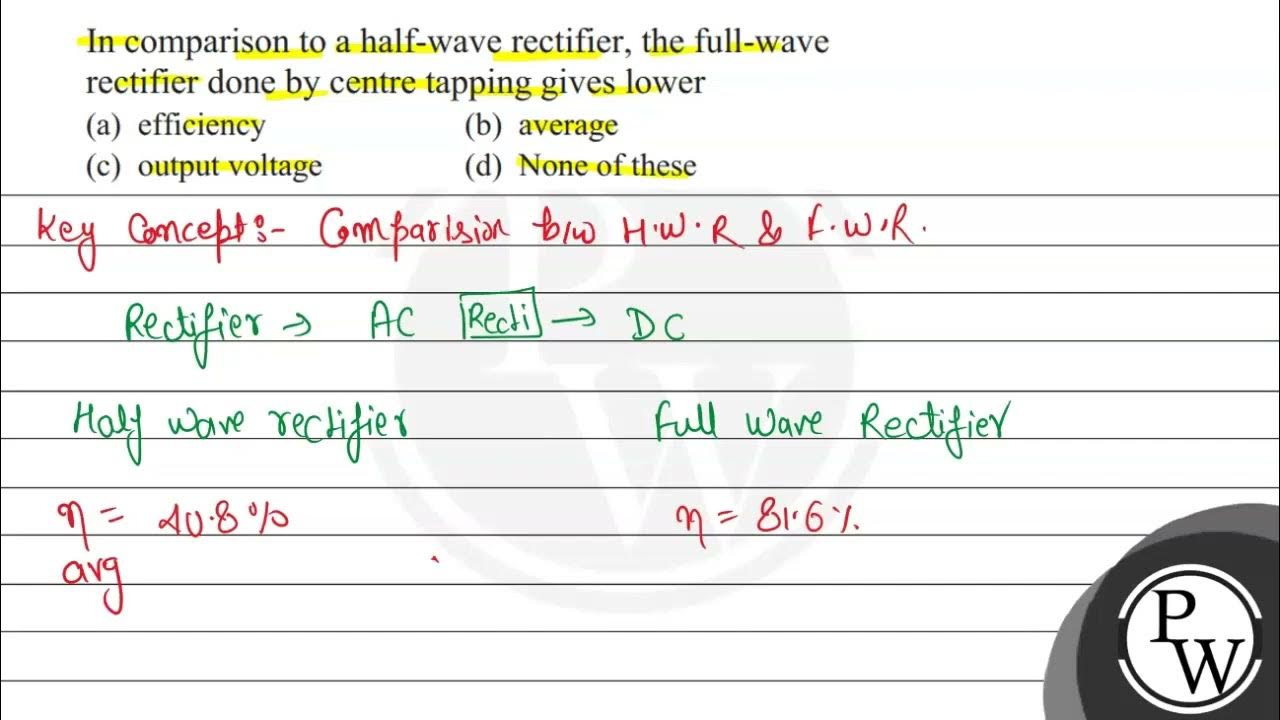 In comparison to a half-wave rectifier, the full-wave
rectifier done by centre tapping gives lower
(a) efficiency (b) average
(c) output voltage (d) None of these
Key Concept:- Comparision b/w H.W.R & F.W.R.
Rectifier → AC Recti → DC
Half wave rectifier Full Wave Rectifier
η = 40.8% η = 81.6%
avg
PW
PW